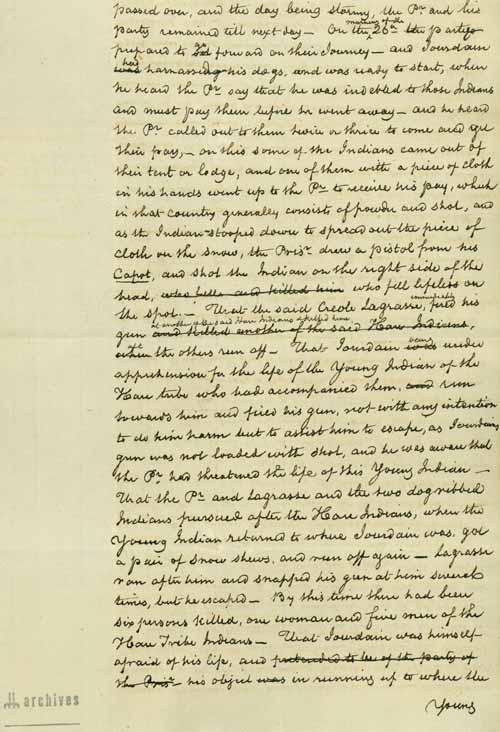 passed over, and the day being stormy, the Pr. and his
party remained till next day – On the morning of the 26th the party
prepared to forward on their Journey – and Jourdain
was had harnassing his dogs, and was ready to start, when
he heard the Pr. say that he was indebted to those Indians
and must pay them before he went away – and he heard
the Pr. called out to them twice or thrice to come and get
their pay, – on this some of the Indians came out of
their tent or lodge, and one of them with a piece of cloth
in his hands went up to the Pr. to receive his pay, which
in that country generally consists of powder and shot, and
as the Indian stooped down to spread out the piece of
cloth on the snow, the Prisr. drew a pistol from his
Capot, and shot the Indian on the right side of the
head, and killed him who fell lifeless on
the spot. – That the said Creole Lagrasse, immediately fired his
gun at another of the said Hare Indians & killed him and killed another of the said Hare Indians,
when the others run off – That Jourdain was being under
apprehension for the life of the Young Indian of the
Hare tribe who had accompanied them, and run
towards him and fired his gun, not with any intention
to do him harm but to assist him to escape, as Jourdains
gun was not loaded with shot, and he was aware that
the Pr. had threatened the life of this Young Indian –
That the Pr. and Lagrasse and the two dogribbed
Indians pursued after the Hare Indians, when the
Young Indian returned to where Jourdain was, got
a pair of snow shews, and run off again – Lagrasse
ran after him and snapped his gun at him several
times, but he escaped – By this time there had been
six persons killed, one woman and five men of the
Hare Tribe Indians – That Jourdain was himself
afraid of his life, and pretended to be of the party of
the Prisr. his object was in running up to where the
Young
archives